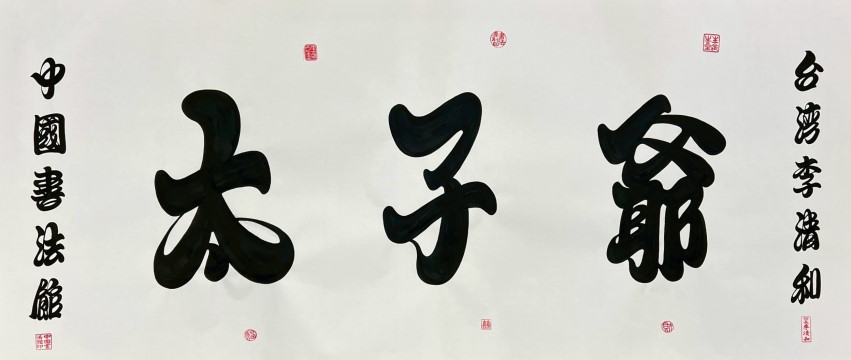 太子爺
台湾李清和
中國書法館